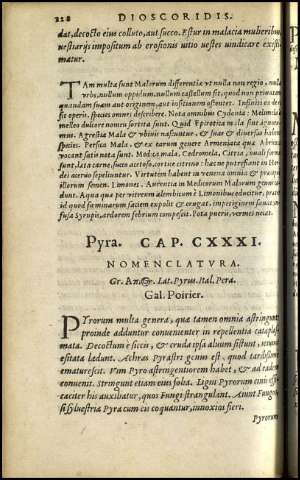 228 DIOSCORIDIS.
dat, decocto eius colluto, aut succo. Estur in malacia mulieribus
uestiarijs impositum ab erosionis uitio uestes uindicare existi
matur.
TAm multa sunt Malorum differentia ut nulla non regio, nulla
urbs, nullum oppidum, nullum castellum sit, quod non priuatim
quandam suam aut originem, aut insitionem ostentet.
fit operis, species omnes describere. Nota omnibus Cydonia: Melimela
melleo dulcore nomen sortita sunt.
mis. Agrestia Mala ubiuis nascuntur, & sua & diuersa habent
species. Persica Mala, & ex earum genere Armeniaca quæ
vocant satis nota sunt. Medica mala, Cedromela, Citria,
sunt, lata carne, succo acetoso, cortice citreo:
dei aceruo sepeliuntur. Virtutem habent in venenis omnibus &
illorum semen. Limones, Aurantia in Medicorum Malorum genera
dunt. Aqua quæ per vitreum alembicum è Limonibus educitur,
id quod fœminarum faciem expolit & erugat, impetiginem sanat
fusa Syrupis, ardorem febrium compescit. Pota pueris, vermes necat.
Pyra. CAP. CXXXI.
NOMENCLATVRA.
Lat. Pyrus. Ital. Pera.
Gal. Poirier.
PYrorum multa genera, quæ tamen omnia astringunt
proinde adduntur conuenienter in repellentia cataplas
mata. Decoctum è siccis, & cruda ipsa aluum sistunt,
esitata lædunt. Achras Pyrastri genus est, quod tardissime
ematurescit. Vim Pyro astringentiorem habet, & ad eadem
conuenit. Stringunt etiam eius folia. Ligni Pyrorum cinis
caciter his auxiliatur, quos Fungi strangulant. Aiunt
si syluestria Pyra cum eis coquantur, innoxios fieri.
Pyrorum